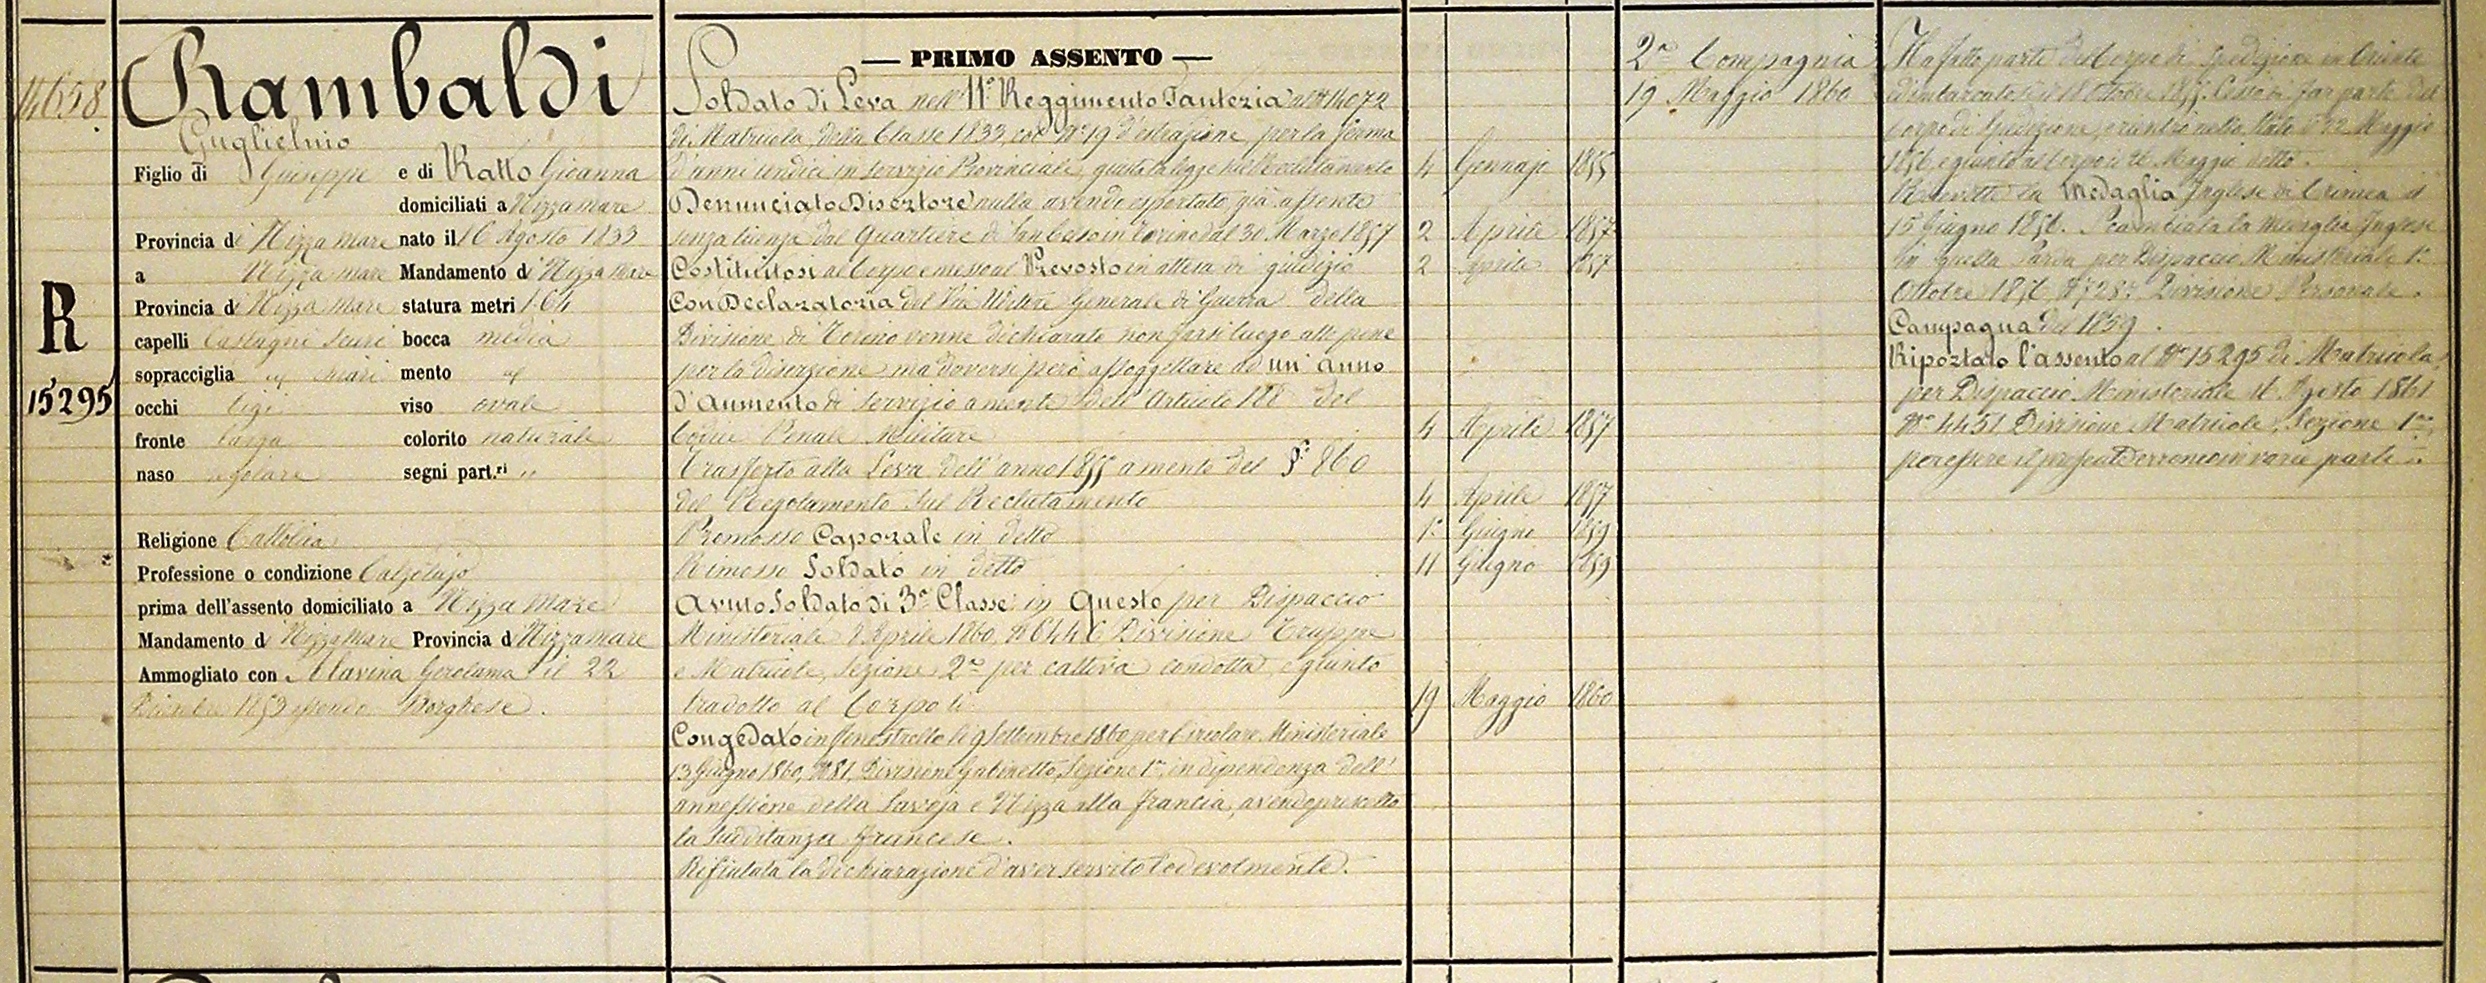 14658
R
15295
Rambaldi
Guglielmo
Figlio di Giuseppe e di Ratto Gioanna
domiciliati a Nizza mare
Provincia di Nizza mare nato il 16 Agosto 1833
a Nizza mare Mandamento di Nizza mare
Provincia di Nizza mare statura metri 1.64
capelli Castagni scuri bocca media
sopracciglia " chiari mento "
occhi bigi viso ovale
fronte larga colorito naturale
naso regolare segni part.ri "
Religione Cattolica
Professione o condizione Calzolajo
prima dell'assento domiciliato a Nizza Mare
Mandamento di Nizza Mare Provincia di Nizza mare
Ammogliato con Gerolama il 22
1853 essendo Borghese.
— PRIMO ASSENTO —
Soldato di Leva nell' 11° Reggimento Fanteria al N° 14072
di Matricola, della Classe 1833, col N° 19 d'estrazione per la ferma
d'anni undici in servizio Provinciale, giusta la legge sul Reclutamento 4 Gennajo 1855
Denunciato Disertore nulla avendo esportato, già assente
senza licenza dal Quartiere di San Celso in Torino dal 30 Marzo 1857 2 Aprile 1857
Costituitosi al Corpo e messo al Prevosto in attesa di giudizio 2 Aprile 1857
Con Declaratoria del Vice Uditore Generale di Guerra della
Divisione di Torino venne dichiarato non farsi luogo alle pene
per la diserzione, ma doversi però assoggettare ad un' anno
d'Aumento di servizio a mente dell' Articolo 188 del
Codice Penale Militare 4 Aprile 1857
Trasferto alla Leva dell'anno 1855 a mente del §° 860
del Regolamento sul Reclutamento 4 Aprile 1857
Promosso Caporale in detto 1° Giugno 1859
Rimosso Soldato in detto 11 Giugno 1859
Avuto Soldato di 3a Classe in Questo per Dispaccio
Ministeriale Aprile 1860, N° 6446 Divisione Truppe
e Matricole, Sezione 2a per cattiva condotta, e giunto
tradotto al Corpo li 19 Maggio 1860
Congedato in Fenestrelle li 9 Settembre 1860 per Circolare Ministeriale
13 Giugno 1860, N° 81, Divisione Gabinetto, Sezione 1a, in dipendenza dell'
annessione della Savoja e Nizza alla Francia, avendo prescelto
la Sudditanza francese.
Rifiutata la dichiarazione d'aver servito lodevolmente.
2a Compagnia
19 Maggio 1860
Ha fatto parte del Corpo di spedizione in Oriente
ed imbarcatosi il Ottobre 1855. Cessò di far parte del
Corpo di Spedizione, e rientrò nello Stato il 12 Maggio
1856, e giunto al Corpo il Maggio detto.
Ricevette la Medaglia Inglese di Crimea il
15 Giugno 1856. la Medaglia Inglese
in Dispaccio Ministeriale 1°
Ottobre 1856, Divisione Personale.
Campagna del 1859.
Riportato l'assento al N° 15295 di Matricola,
per Dispaccio Ministeriale 16 Agosto 1861
N° 4451, Divisione Matricole, Sezione 1a,
per essere il presente erroneo in varie parti.